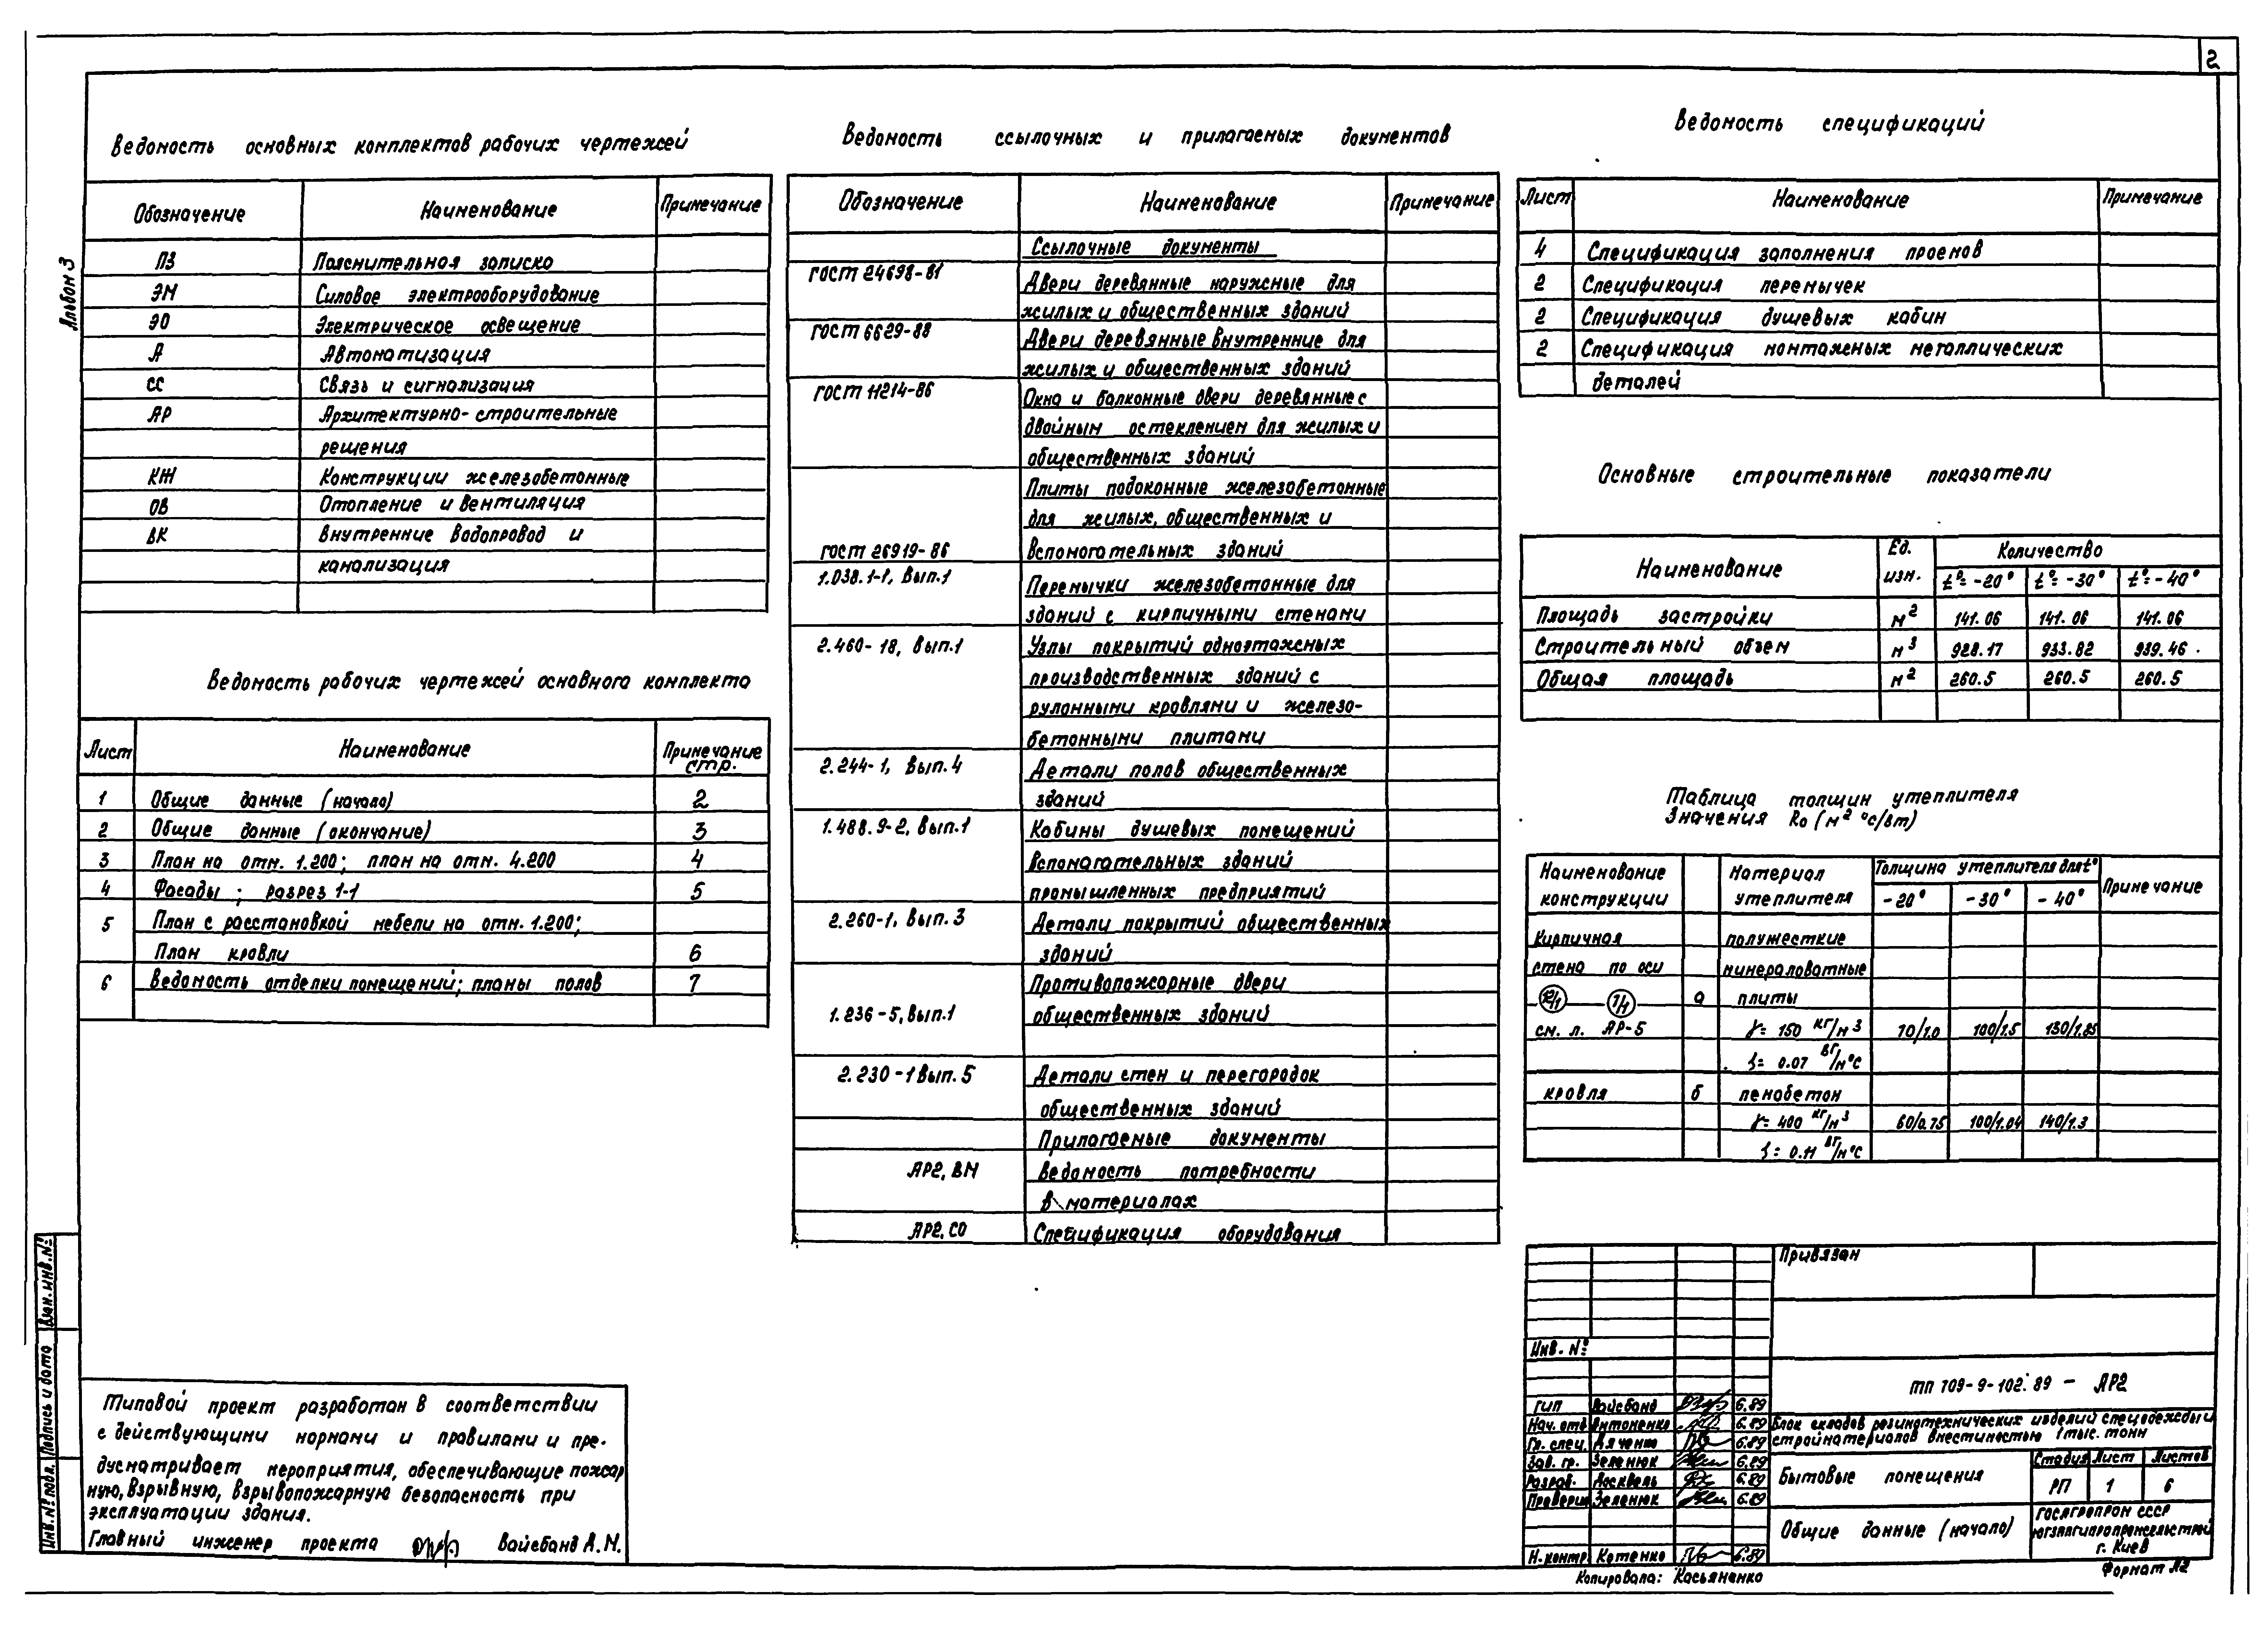 2
Альбом 3
Ведомость основных комплектов рабочих чертежей
Обозначение Наименование Примечание
ПЗ Пояснительная записка
ЭМ Силовое электрооборудование
ЭО Электрическое освещение
А Автоматизация
СС Связь и сигнализация
АР Архитектурно-строительные
решения
КЖ Конструкции железобетонные
ОВ Отопление и вентиляция
ВК Внутренние водопровод и
канализация
Ведомость рабочих чертежей основного комплекта
Лист Наименование Примечание
стр.
1 Общие данные (начало) 2
2 Общие данные (окончание) 3
3 План на отм. 1.200; план на отм. 4.200 4
4 Фасады; разрез 1-1 5
5 План с расстановкой мебели на отм. 1.200;
План кровли 6
6 Ведомость отделки помещений; планы полов 7
Типовой проект разработан в соответствии
с действующими нормами и правилами и пре-
дусматривает мероприятия, обеспечивающие пожар
ную, взрывную, взрывопожарную безопасность при
эксплуатации здания.
Главный инженер проекта Вайсбанд А.М.
Взам. инв. №
Подпись и дата
Инв. № подл.
Ведомость ссылочных и прилагаемых документов
Обозначение Наименование Примечание
Ссылочные документы
ГОСТ 24698-81 Двери деревянные наружные для
жилых и общественных зданий
ГОСТ 6629-88 Двери деревянные внутренние для
жилых и общественных зданий
ГОСТ 11214-86 Окна и балконные двери деревянные с
двойным остеклением для жилых и
общественных зданий
Плиты подоконные железобетонные
для жилых, общественных и
ГОСТ 26919-86 вспомогательных зданий
1.038.1-1, вып.1 Перемычки железобетонные для
зданий с кирпичными стенами
2.460-18, вып.1 Узлы покрытий одноэтажных
производственных зданий с
рулонными кровлями и железо-
бетонными плитами
2.244-1, вып.4 Детали полов общественных
зданий
1.488.9-2, вып.1 Кабины душевых помещений
вспомагательных зданий
промышленных предприятий
2.260-1, вып.3 Детали покрытий общественных
зданий
Противопожарные двери
1.236-5, вып.1 общественных зданий
2.230-1 вып.5 Детали стен и перегородок
общественных зданий
Прилагаемые документы
АР2, ВМ Ведомость потребности
в материалах
АР2, СО Спецификация оборудования
Ведомость спецификаций
Лист Наименование Примечание
4 Спецификация заполнения проемов
2 Спецификация перемычек
2 Спецификация душевых кабин
2 Спецификация монтажных металлических
деталей
Основные строительные показатели
Наименование Ед. изм. Количество
t°=-20° t°=-30° t°=-40°
Площадь застройки м² 141.06 141.06 141.06
Строительный объем м³ 928.17 933.82 939.46
Общая площадь м² 260.5 260.5 260.5
Таблица толщин утеплителя
Значения Rо (м² °С/Вт)
Наименование Материал Толщина утеплителя для t° Примечание
конструкции утеплителя -20° -30° -40°
Кирпичная полужесткие
стена по оси минераловатные
а плиты
см. л. АР-5 γ= 150 кг/м³ 70/1.0 100/1.5 130/1.85
λ= 0.07 вт/м°С
кровля б пенобетон
γ= 400 кг/м³ 60/0.75 100/1.04 140/1.3
λ= 0.11 вт/м°С
Привязан
Инв. №
ТП 709-9-102.89 - АР2
ГИП Вайсбанд 6.89
Нач. отд Антоненко 6.89 Блок складов резинотехнических изделий спецодежды и
Гл. спец. Дяченко 6.89 стройматериалов вместимостью 1 тыс. тонн
Зав. гр. Зеленюк 6.89
Разраб. Москаль 6.89 Бытовые помещения Стадия Лист Листов
Проверил Зеленюк 6.89 РП 1 6
Общие данные (начало) Госагропром СССР
Югзапгипропромсельстрой
г. Киев
Н. контр. Котенко 6.89
Копировала: Касьяненко Формат А2